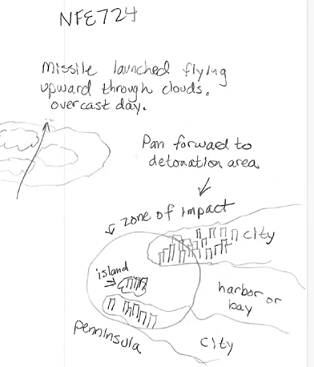 NFE724
Missile launched flying
upward through clouds.
overcast day.
Pan forward to
detonation area
zone of impact
city
island
harbor or
bay
penninsula
city